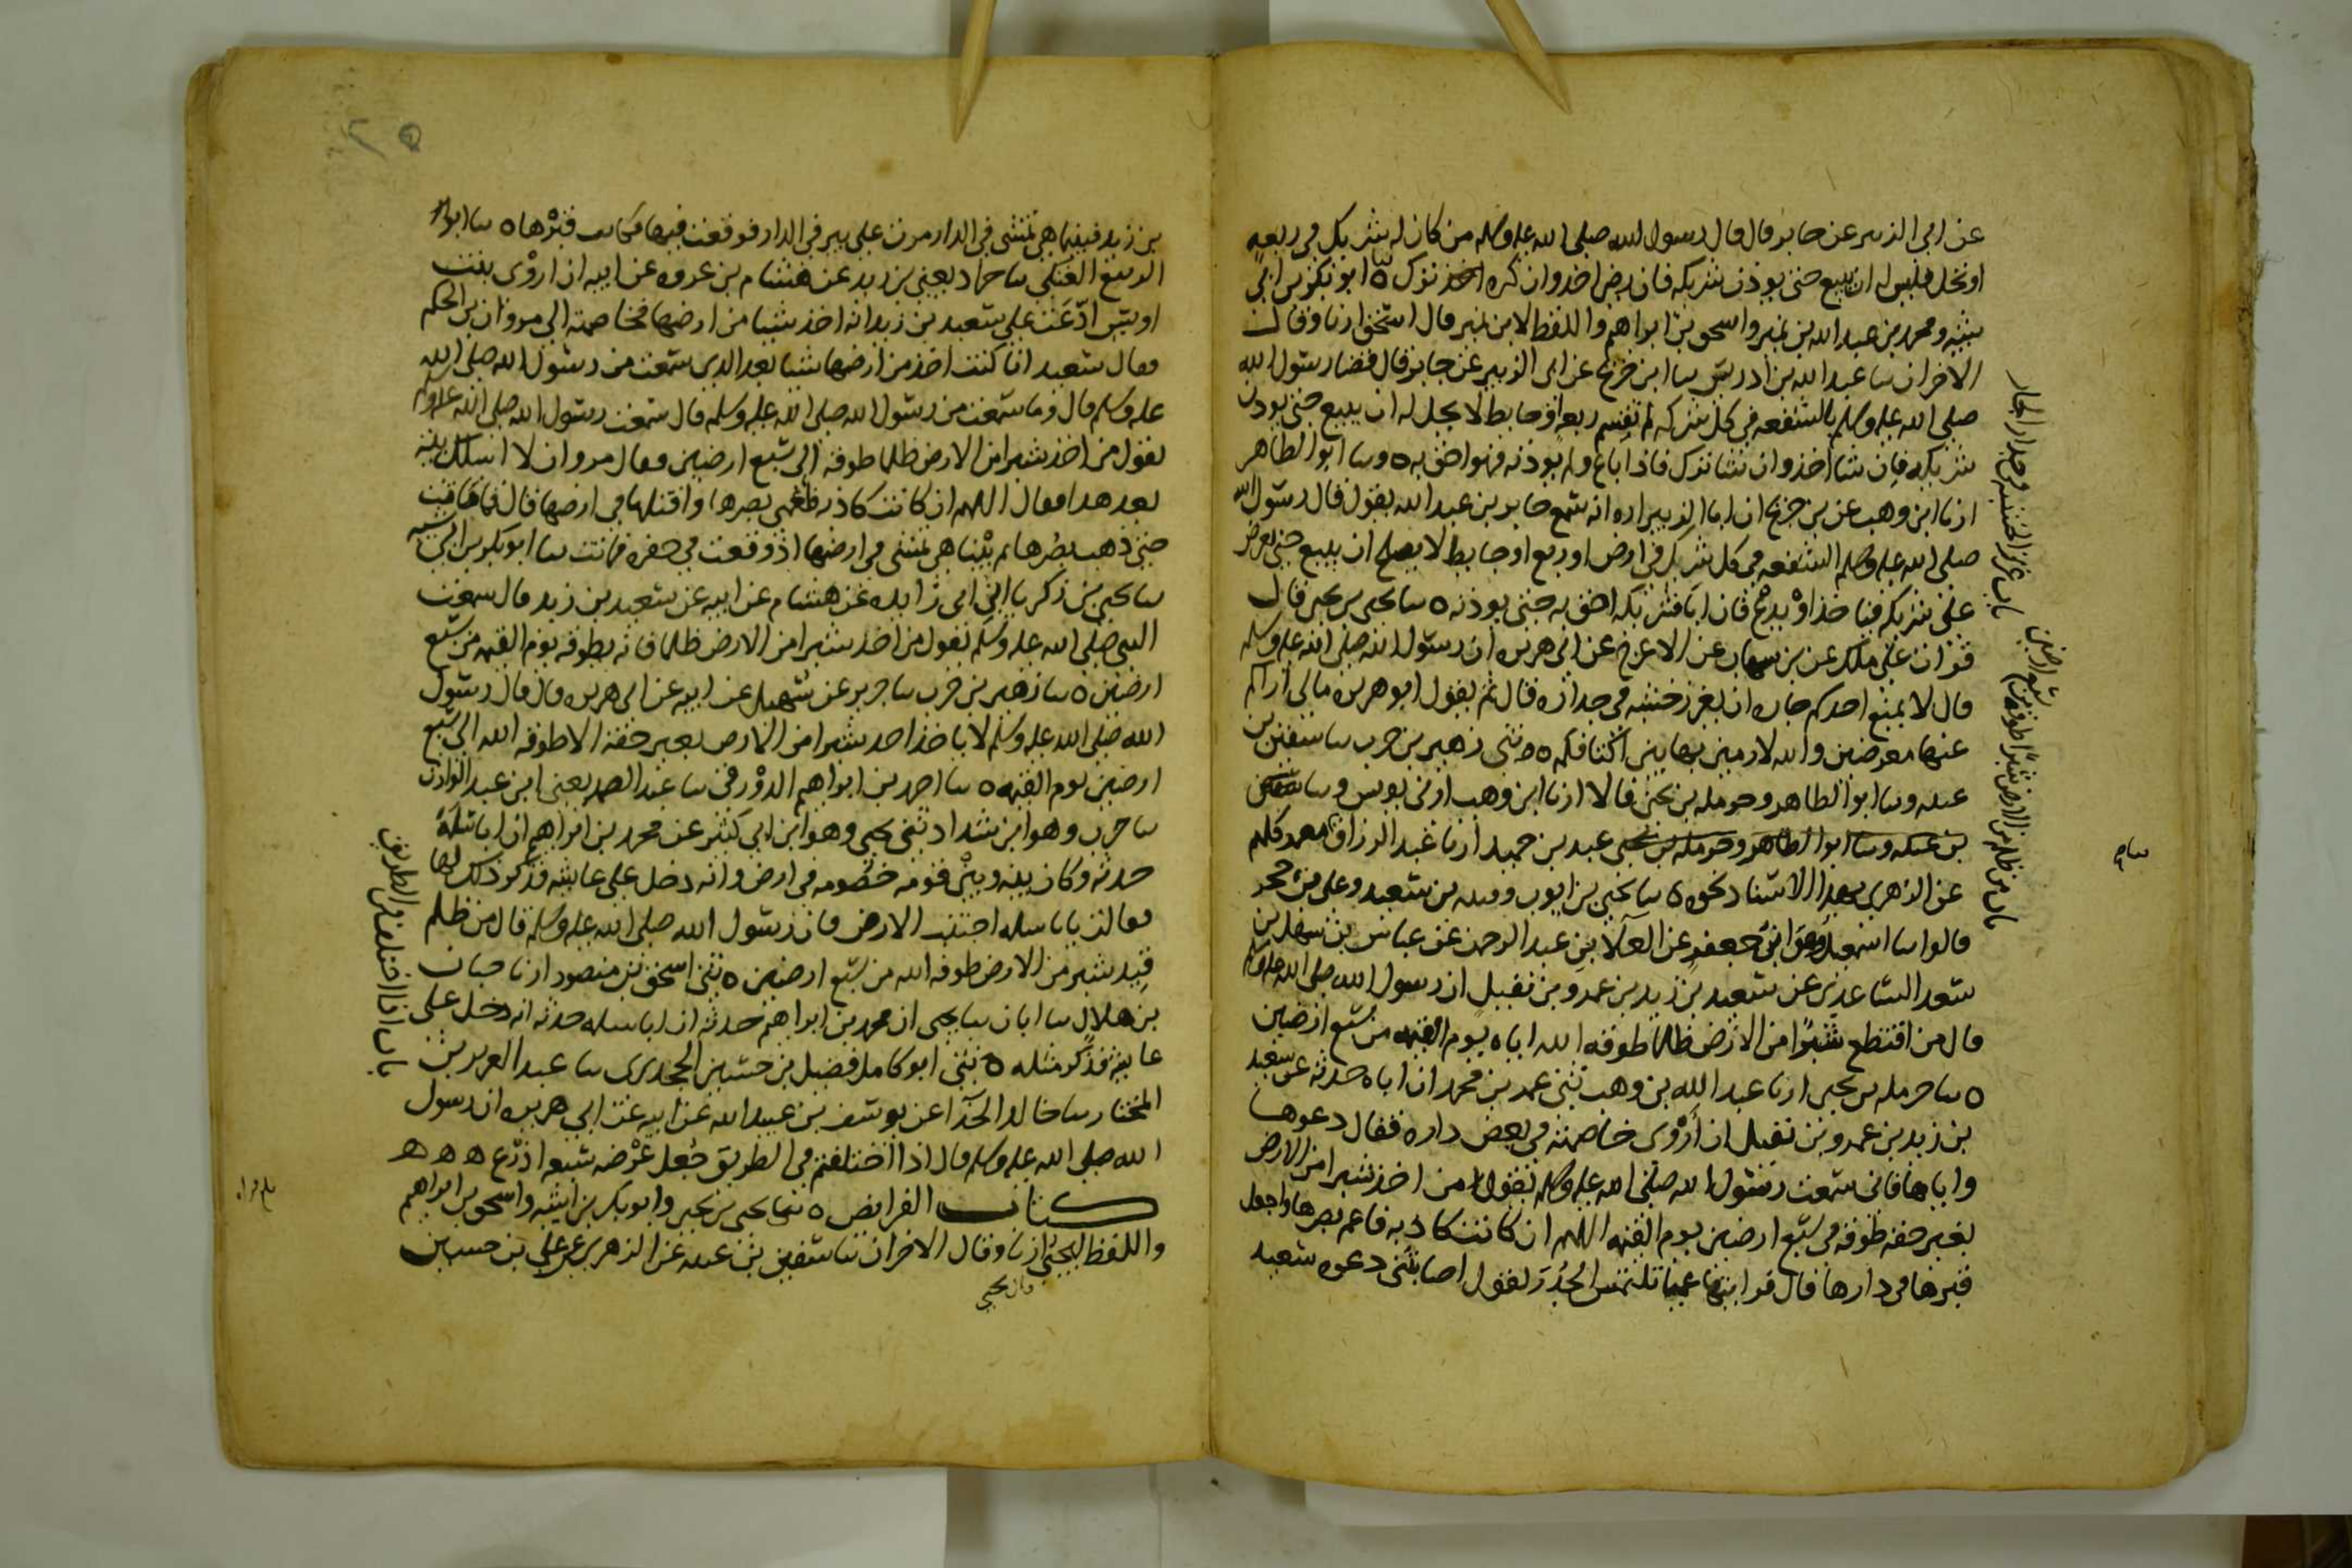 عن ابى الزبير عن جابر قال قال رسول الله صلى الله عليه وسلم من كان له شريك في ربعه
او نخل فليس له ان يبيع حتى يوذن شريكه فان رضى اخذ وان كره ترك ه ابو بكر بن ابى
شيبه ومحمد بن عبد الله بن نمير واسحق بن ابراهيم واللفظ لابن نمير قال اسحق ارنا وقال
الاخران سا عبد الله بن ادريس سا ابن جريج عن ابى الزبير عن جابر قال قضا رسول الله
صلى الله عليه وسلم بالشفعه في كل شركه لم تقسم ربعه او حايط لا يحل له ان يبيع حتى يوذن
شريكه فان شا اخذ وان شا ترك فاذا باع ولم يوذنه فهو احق به ه وسا ابو الطاهر
ارنا ابن وهب عن بن جريج ان ابا الزبير اره انه سمع جابر بن عبد الله يقول قال رسول الله
صلى الله عليه وسلم الشفعه في كل شرك في ارض او ربع او حايط لا يصلح ان يبيع حتى يعرض
على شريكه فياخذ او يدع فان ابا فشريكه احق به حتى يوذنه ه سا يحيى بن يحيى قال
قرات على ملك عن بن شهاب عن الاعرج عن ابى هريره ان رسول الله صلى الله عليه وسلم
قال لا يمنع احدكم جاره ان يغرز خشبه في جداره قال ثم يقول ابو هريره مالى اراكم
عنها معرضين والله لارمين بها بين اكتافكم ه ثنى زهير بن حرب سا سفين بن
عيينه وسا ابو الطاهر وحرمله بن يحيى قالا ارنا ابن وهب ارنى يونس وسا
بن عيينه وسا ابو الطاهر وحرمله بن يحيى عبد بن حميد ارنا عبد الرزاق معمر كلهم
عن الزهرى بهذا الاسناد نحوه ه سا يحيى بن ايوب وقتيبه بن سعيد وعلى بن حجر
قالوا سا اسمعيل وهو ابن جعفر عن العلا بن عبد الرحمن عن عباس بن سهل بن
سعد الساعدى عن سعيد بن زيد بن عمرو بن نفيل ان رسول الله صلى الله عليه وسلم
قال من اقتطع شبرا من الارض ظلما طوقه الله اياه يوم القيمه من سبع ارضين
ه سا حرمله بن يحيى ارنا عبد الله بن وهب ثنى عمر بن محمد ان اباه حدثه عن سعيد
بن زيد بن عمرو بن نفيل ان اروى خاصمته في بعض داره فقال دعوها
واياها فانى سمعت رسول الله صلى الله عليه وسلم يقول من اخذ شبرا من الارض
بغير حقه طوقه في سبع ارضين يوم القيمه اللهم ان كانت كاذبه فاعم بصرها واجعل
قبرها في دارها قال فرايتها عميا تلتمس الجدر تقول اصابتنى دعوه سعيد
باب غرز الخشبه في جدار الجار
باب من ظلم من الارض شبرا طوقه من
سبع ارضين
بن زيد فبينما هى تمشى في الدار مرت على بير في الدار فوقعت فيها فكانت قبرها ه سا ابو
الربيع العتكى سا حماد يعنى بن زيد عن هشام بن عروه عن ابيه ان اروى بنت
اويس ادعت على سعيد بن زيد انه اخذ شيا من ارضها فخاصمته الى مروان بن الحكم
فقال سعيد انا كنت اخذ من ارضها شيا بعد الذى سمعت من رسول الله صلى الله
عليه وسلم قال وما سمعت من رسول الله صلى الله عليه وسلم قال سمعت رسول الله صلى الله عليه وسلم
يقول من اخذ شبرا من الارض ظلما طوقه الى سبع ارضين فقال مروان لا اسلك بينه
بعد هذا فقال اللهم ان كانت كاذبه فعمى بصرها واقتلها في ارضها قال فما ماتت
حتى ذهب بصرها ثم بينا هى تمشى في ارضها اذ وقعت في حفره فماتت سا ابو بكر بن ابى شيبه
سا يحيى بن زكريا ابن ابى زايده عن هشام عن ابيه عن سعيد بن زيد قال سمعت
النبى صلى الله عليه وسلم يقول من اخذ شبرا من الارض ظلما فانه يطوقه يوم القيمه من سبع
ارضين ه سا زهير بن حرب سا جرير عن سهيل عن ابيه عن ابى هريره قال قال رسول
الله صلى الله عليه وسلم لا ياخذ احد شبرا من الارض بغير حقه الا طوقه الله الى سبع
ارضين يوم القيمه ه سا احمد بن ابراهيم الدورقى سا عبد الصمد يعنى ابن عبد الوارث
سا حرب وهو ابن شداد ثنى يحيى وهو ابن ابى كثير عن محمد بن ابراهيم ان ابا سلمه
حدثه وكان بينه وبين قومه خصومه في ارض وانه دخل على عايشه فذكر ذلك لها
فقالت يابا سلمه اجتنب الارض فان رسول الله صلى الله عليه وسلم قال من ظلم
قيد شبر من الارض طوقه الله من سبع ارضين ه ثنى اسحق بن منصور ارنا حبان
بن هلال سا ابان سا يحيى ان محمد بن ابراهيم حدثه ان ابا سلمه حدثه انه دخل على
عايشه فذكر مثله ه ثنى ابو كامل فضيل بن حسين الجحدرى سا عبد العزيز بن
المختار سا خالد الحذا عن يوسف بن عبد الله عن ابيه عن ابى هريره ان رسول
الله صلى الله عليه وسلم قال اذا اختلفتم في الطريق جعل عرضه سبع اذرع ه ه ه
كتاب الفرايض ه ثنا يحيى بن يحيى وابو بكر بن ابى شيبه واسحق بن ابراهيم
واللفظ ليحيى ارنا وقال الاخران سا سفين بن عيينه عن الزهرى عن على بن حسين
قال يحيى
باب اذا اختلف في الطريق